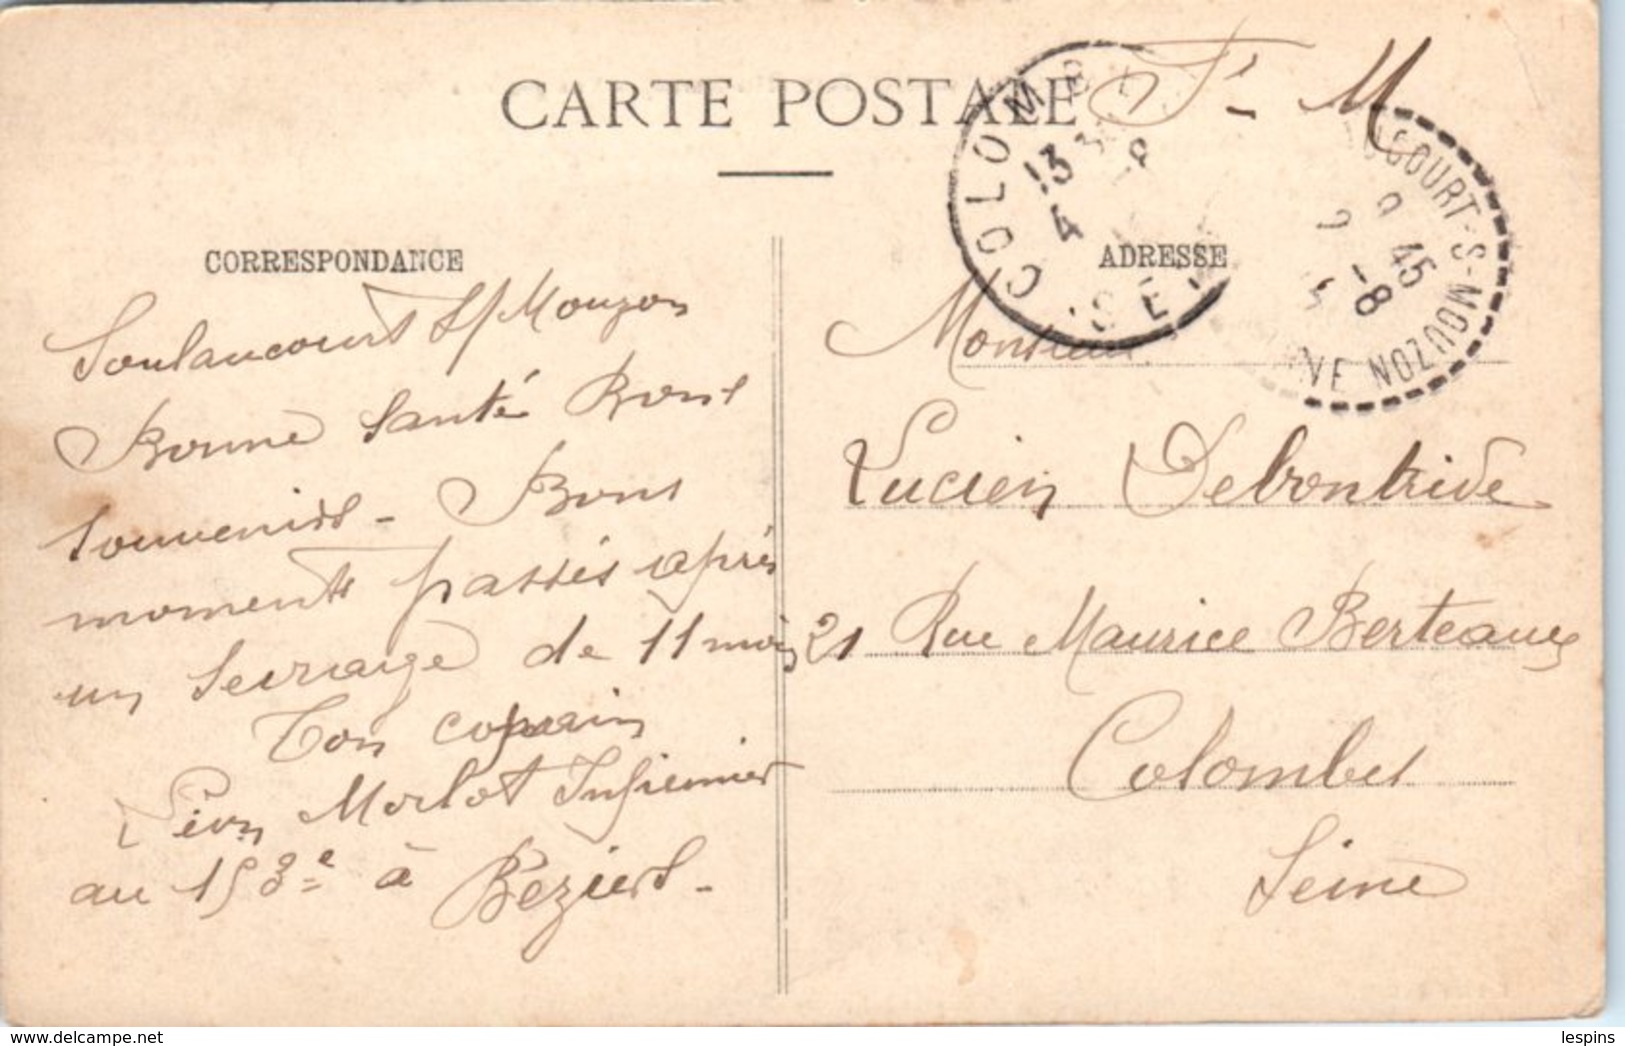 CARTE POSTALE
F. M
COLOMBE
SE
13
4
8
COURT-S-MOUZON
VE
45
8
CORRESPONDANCE
ADRESSE
Soulaucourt S/Mouzon
Bonne Santé Bons
souvenirs - Bons
moments passés après
un sevrage de 11 mois
Ton copain
Léon Morlot Infirmier
au 153e à Beziers -
Monsieur
Lucien Debontride
21 Rue Maurice Berteaux
Colombes
Seine
lespins
www.delcampe.net